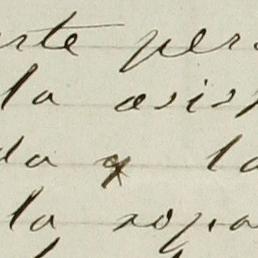 rte per
la asis
da y la
la sopa